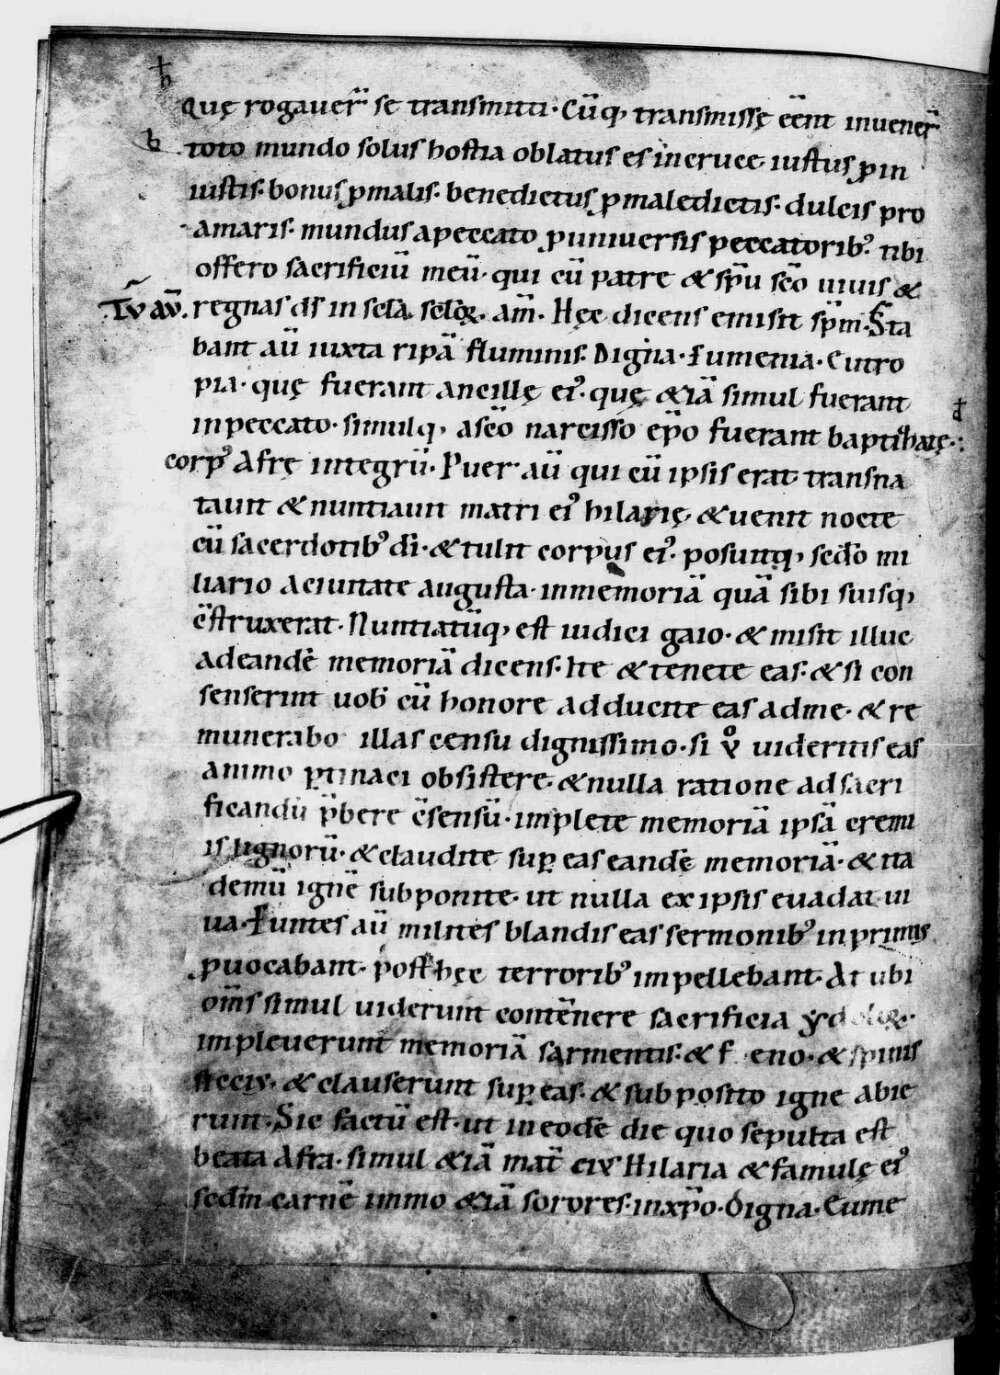 Quę rogauer̄ se transmitti· Cūq; transmissę eēnt inuener̄
toto mundo solus hostia oblatus es in cruce· iustus ꝓ in
iustis· bonus ꝓ malis· benedictus ꝓ maledictis· dulcis pro
amaris· mundus a peccato ꝓ uniuersis peccatorib; tibi
offero sacrificiū meū· qui cū patre & sp̄u sc̄o uiuis &
regnas ds̄ in scl̄a scl̄oꝝ· am̄· Hęc dicens emisit sp̄m· Sta
bant aū iuxta ripā fluminis· Digna· Eumenia· Eutro
pia· quę fuerant ancillę ei᷒· quę &iā simul fuerant
in peccato· simulq; a sc̄o narcisso ep̄o fuerant baptizatę·:
corp᷒ Afrę integrū· Puer aū qui cū ipsis erat transna
tauit & nuntiauit matri ei᷒ hilarię· & uenit nocte
cū sacerdotib; di̅· & tulit corpus ei᷒· posuitq; scd̄o mi
liario a ciuitate augusta· in memoriā quā sibi suisq;
c̄struxerat· Nuntiatūq; est iudici gaio· & misit illuc
ad eandē memoriā dicens· Ite & tenete eas· & si con
senserint uob̄ cū honore adducite eas ad me· & re
munerabo illas censu dignissimo· si ū͛ uideritis eas
animo ꝑtinaci obsistere· & nulla ratione ad sacri
ficandū p̄bere c̄sensū· implete memoriā ipsā cremi
is lignorū· & claudite suꝑ eas eandē memoriā· & ita
demū ignē subponite· ut nulla ex ipsis euadat ui
ua· Euntes aū milites blandis eas sermonib; in primis
ꝓuocabant· post hęc terrorib; impellebant· At ubi
om̄s simul uiderunt contēnere sacrificia ydoloꝝ·
impleuerunt memoriā sarmentis· & f eno· & spinis
siccis· & clauserunt suꝑ eas· & subposito igne abie
runt· Sic factū est· ut in eodē die quo sepulta est
beata Afra· simul &iā mat̄ eius Hilaria & famulę ei᷒
scdm̄ carnē immo &iā sorores· in xp̄o· Digna· Eume